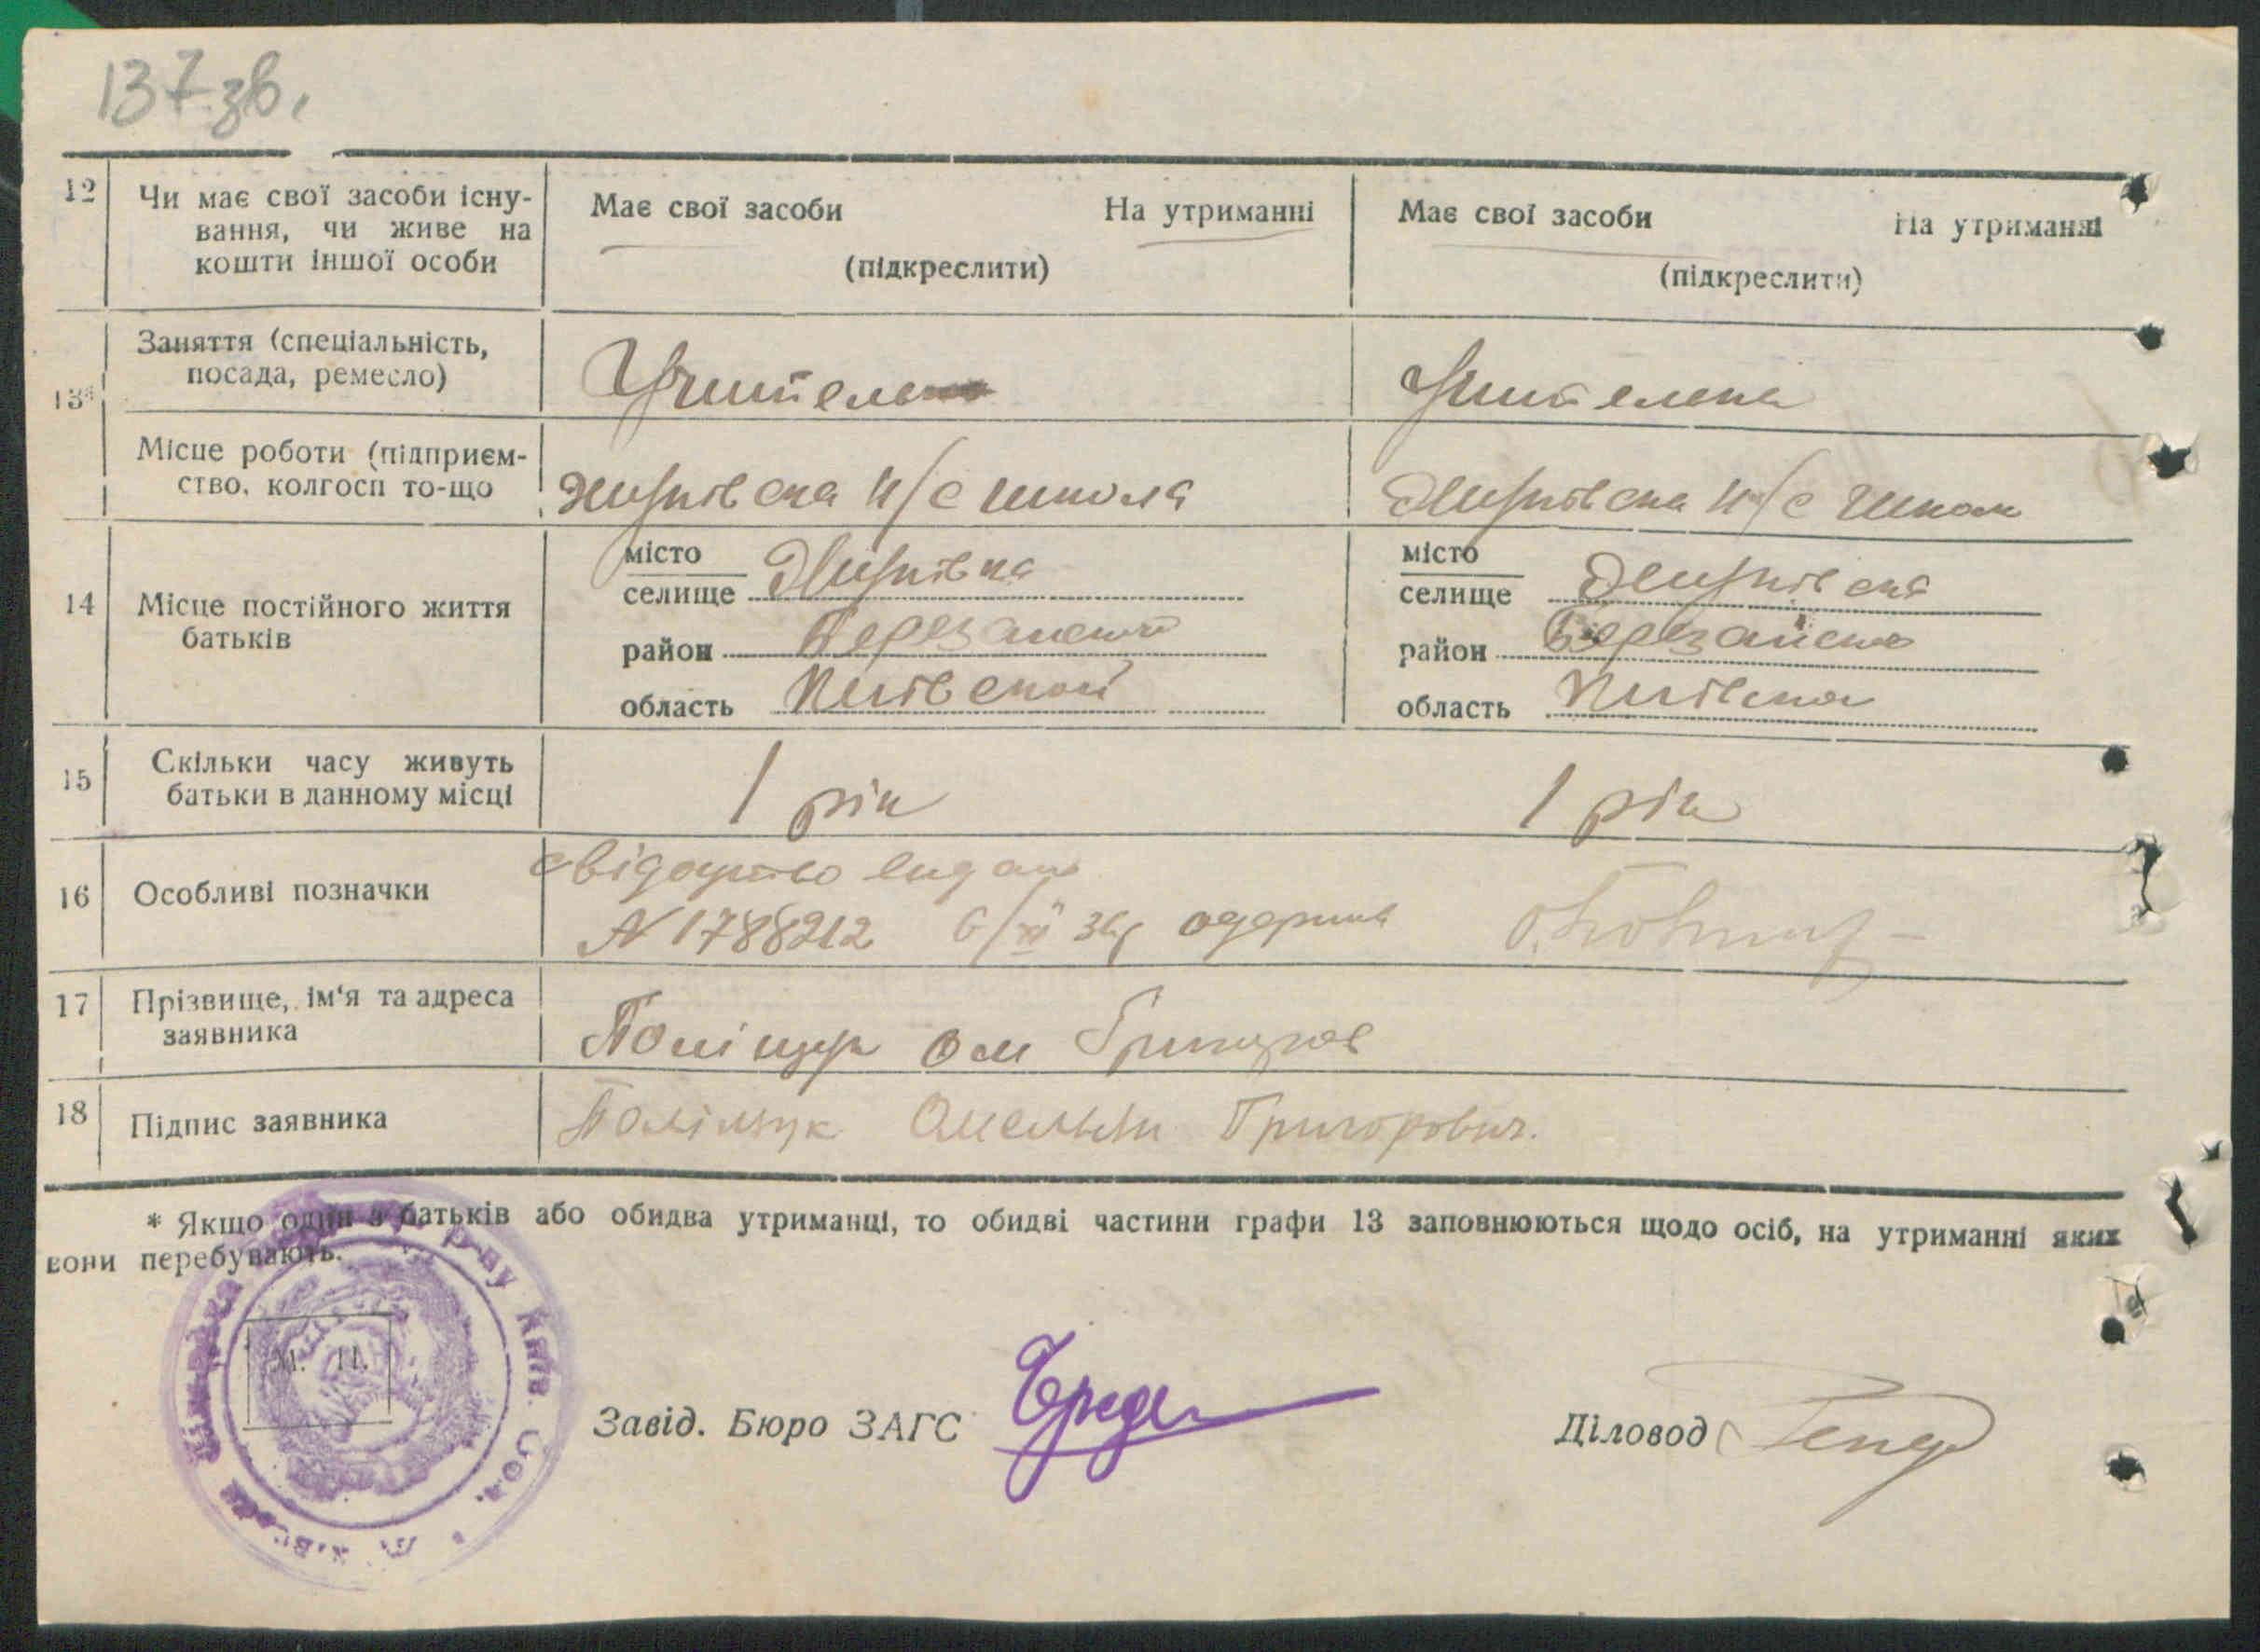 137 зв.
12 Чи має свої засоби існу-
вання, чи живе на
кошти іншої особи
Має свої засоби На утриманні
(підкреслити)
Має свої засоби На утриманні
(підкреслити)
13*
Заняття (спеціальність,
посада, ремесло)
Учитель
Учителька
Місце роботи (підприєм-
ство, колгосп то-що
н/с школа
н/с школа
14 Місце постійного життя
батьків
місто
селище
район Березанський
область Київской
місто
селище
район Березанський
область Київська
15 Скільки часу живуть
батьки в данному місці
1 рік 1 рік
16 Особливі позначки
свідоцтво видано
N 1788212 6/XII 36р одержив
17 Прізвище, ім‘я та адреса
заявника
Поліщук Ом Григоров
18 Підпис заявника
Поліщук Омельян Григорович.
* Якщо один з батьків або обидва утриманці, то обидві частини графи 13 заповнюються щодо осіб, на утриманні яких
вони перебувають.
р-ну Київ. Обл.
М. П.
Завід. Бюро ЗАГС
Діловод